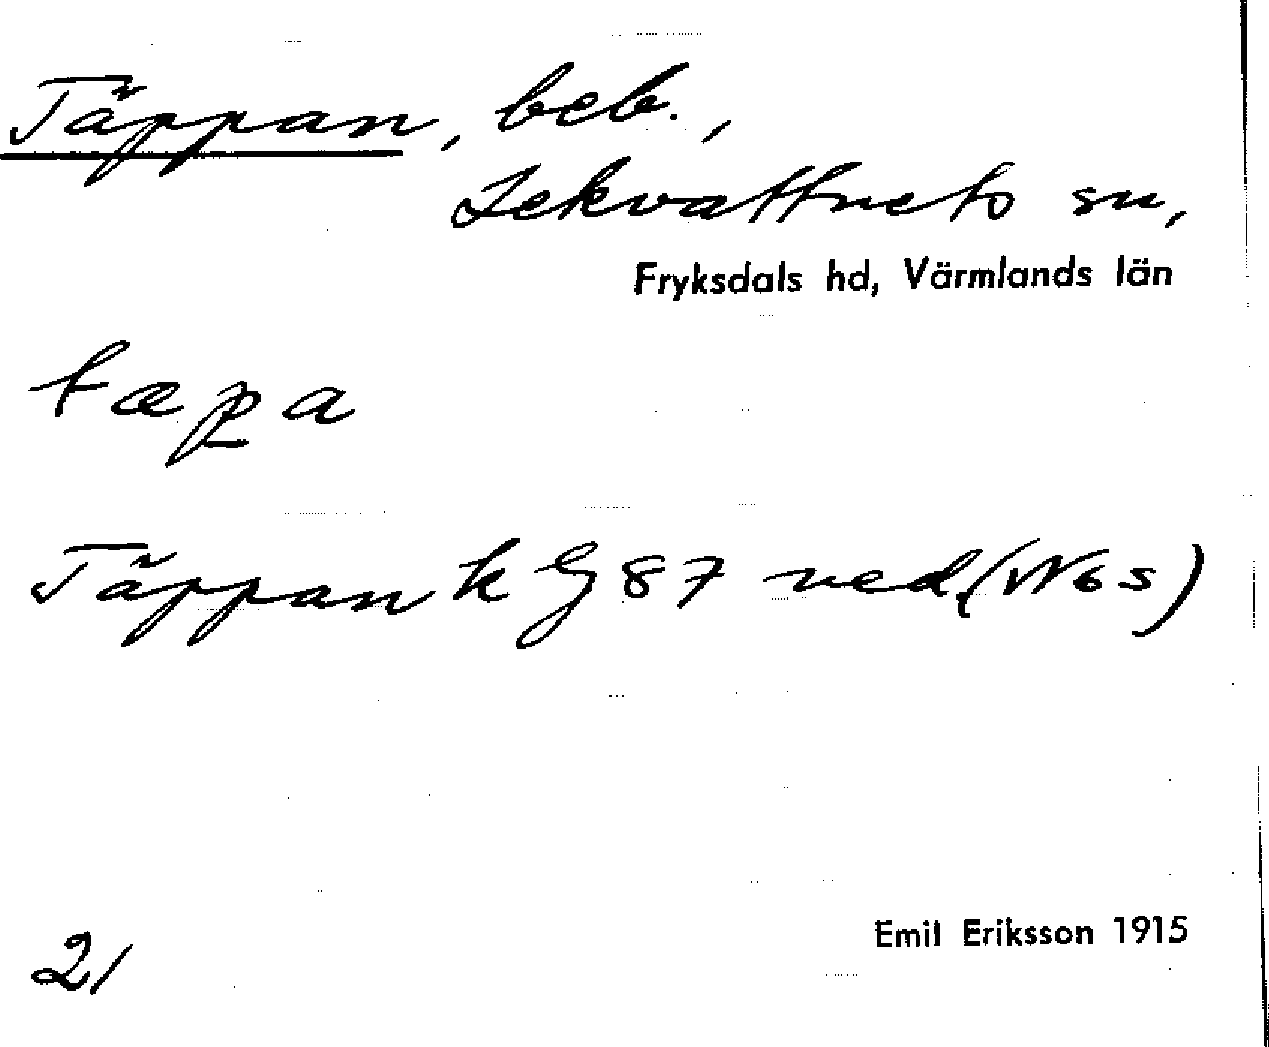 Täppan, beb.,
Lekvattnets sn,
Fryksdals hd, Värmlands län
tæpa
Täppan k G 87 ned. (N 6 s)
Emil Eriksson 1915
21